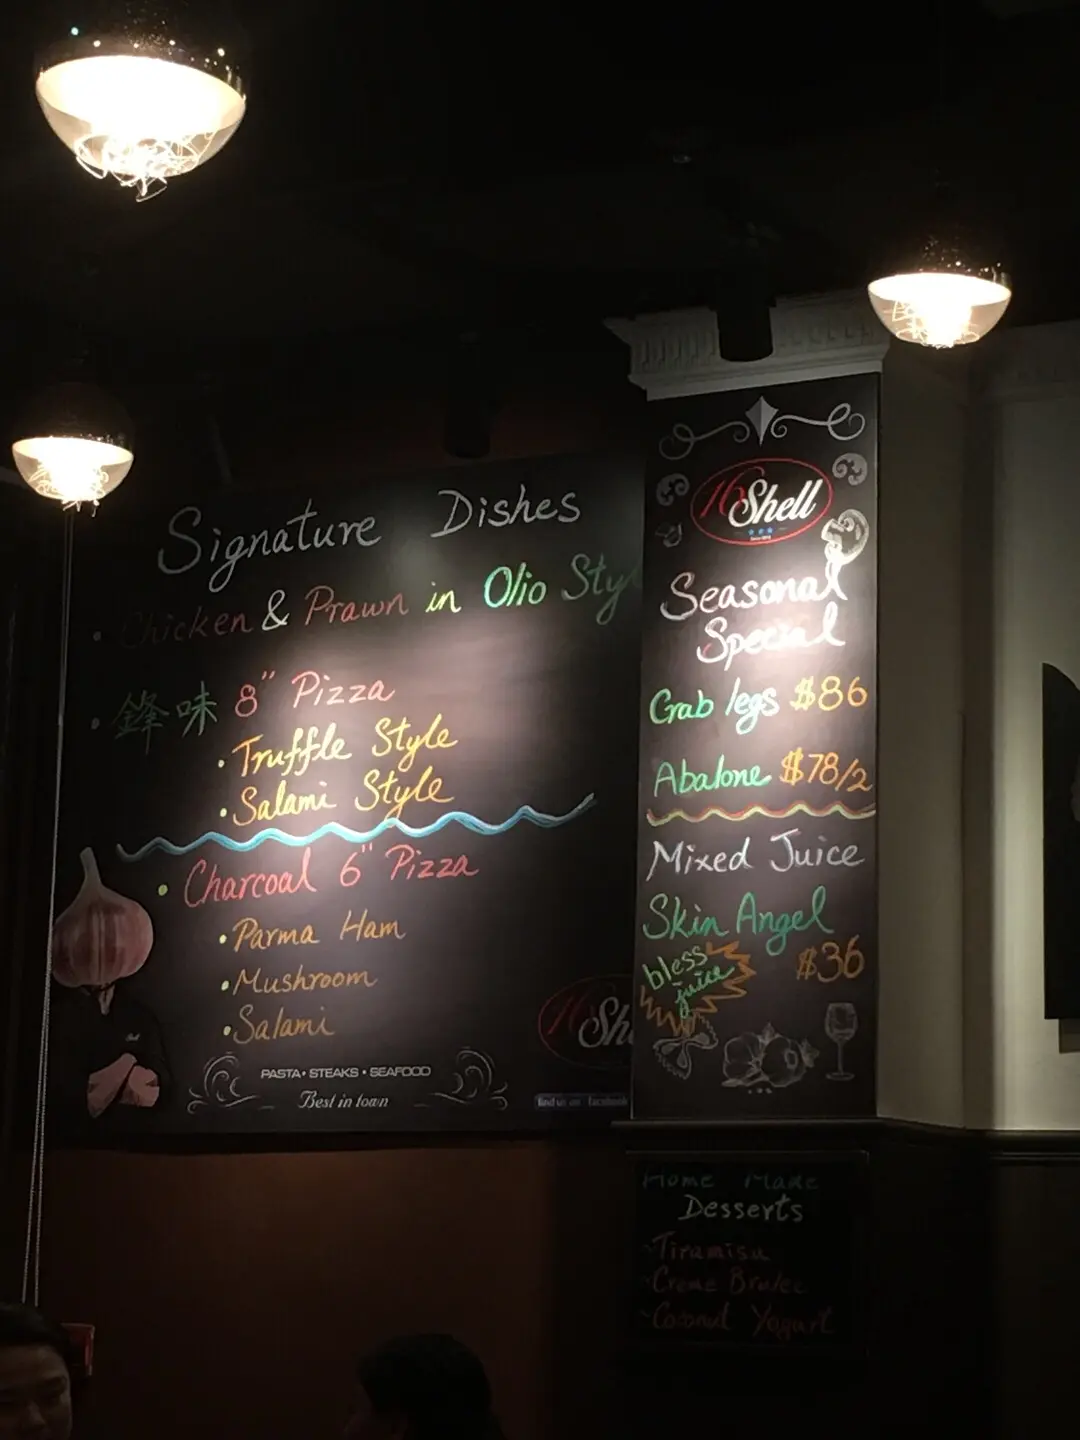 Signature Dishes
• Chicken & Prawn in Olio Sty
• 鋒味 8" Pizza
• Truffle Style
• Salami Style
• Charcoal 6" Pizza
• Parma Ham
• Mushroom
• Salami
PASTA • STEAKS • SEAFOOD
Best in town
16 She
find us on facebook
16 Shell
Seasonal
Special
Crab legs $86
Abalone $78/2
Mixed Juice
Skin Angel
$36
bless
juice
Home Made
Desserts
Tiramisu
Creme Brulee
Coconut Yogurt